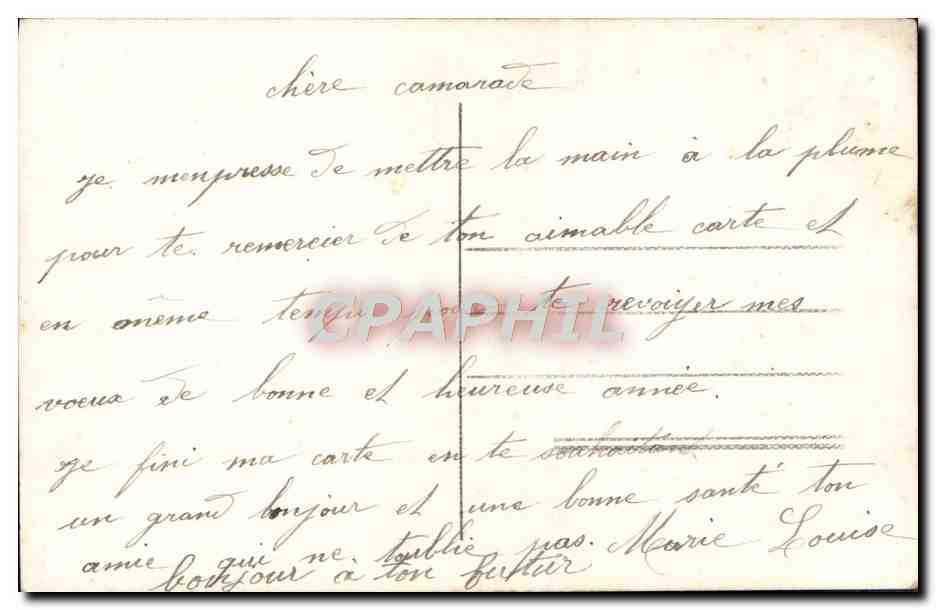 chère camarade
je menpresse de mettre la main à la plume
pour te remercier de ton aimable carte et
en même temps pour te revoiyer mes
CPAPHIL
voeux de bonne et heureuse année.
je fini ma carte en te souhaitant
un grand bonjour et une bonne santé ton
amie qui ne toublie pas. Marie Louise
bonjour à ton futur